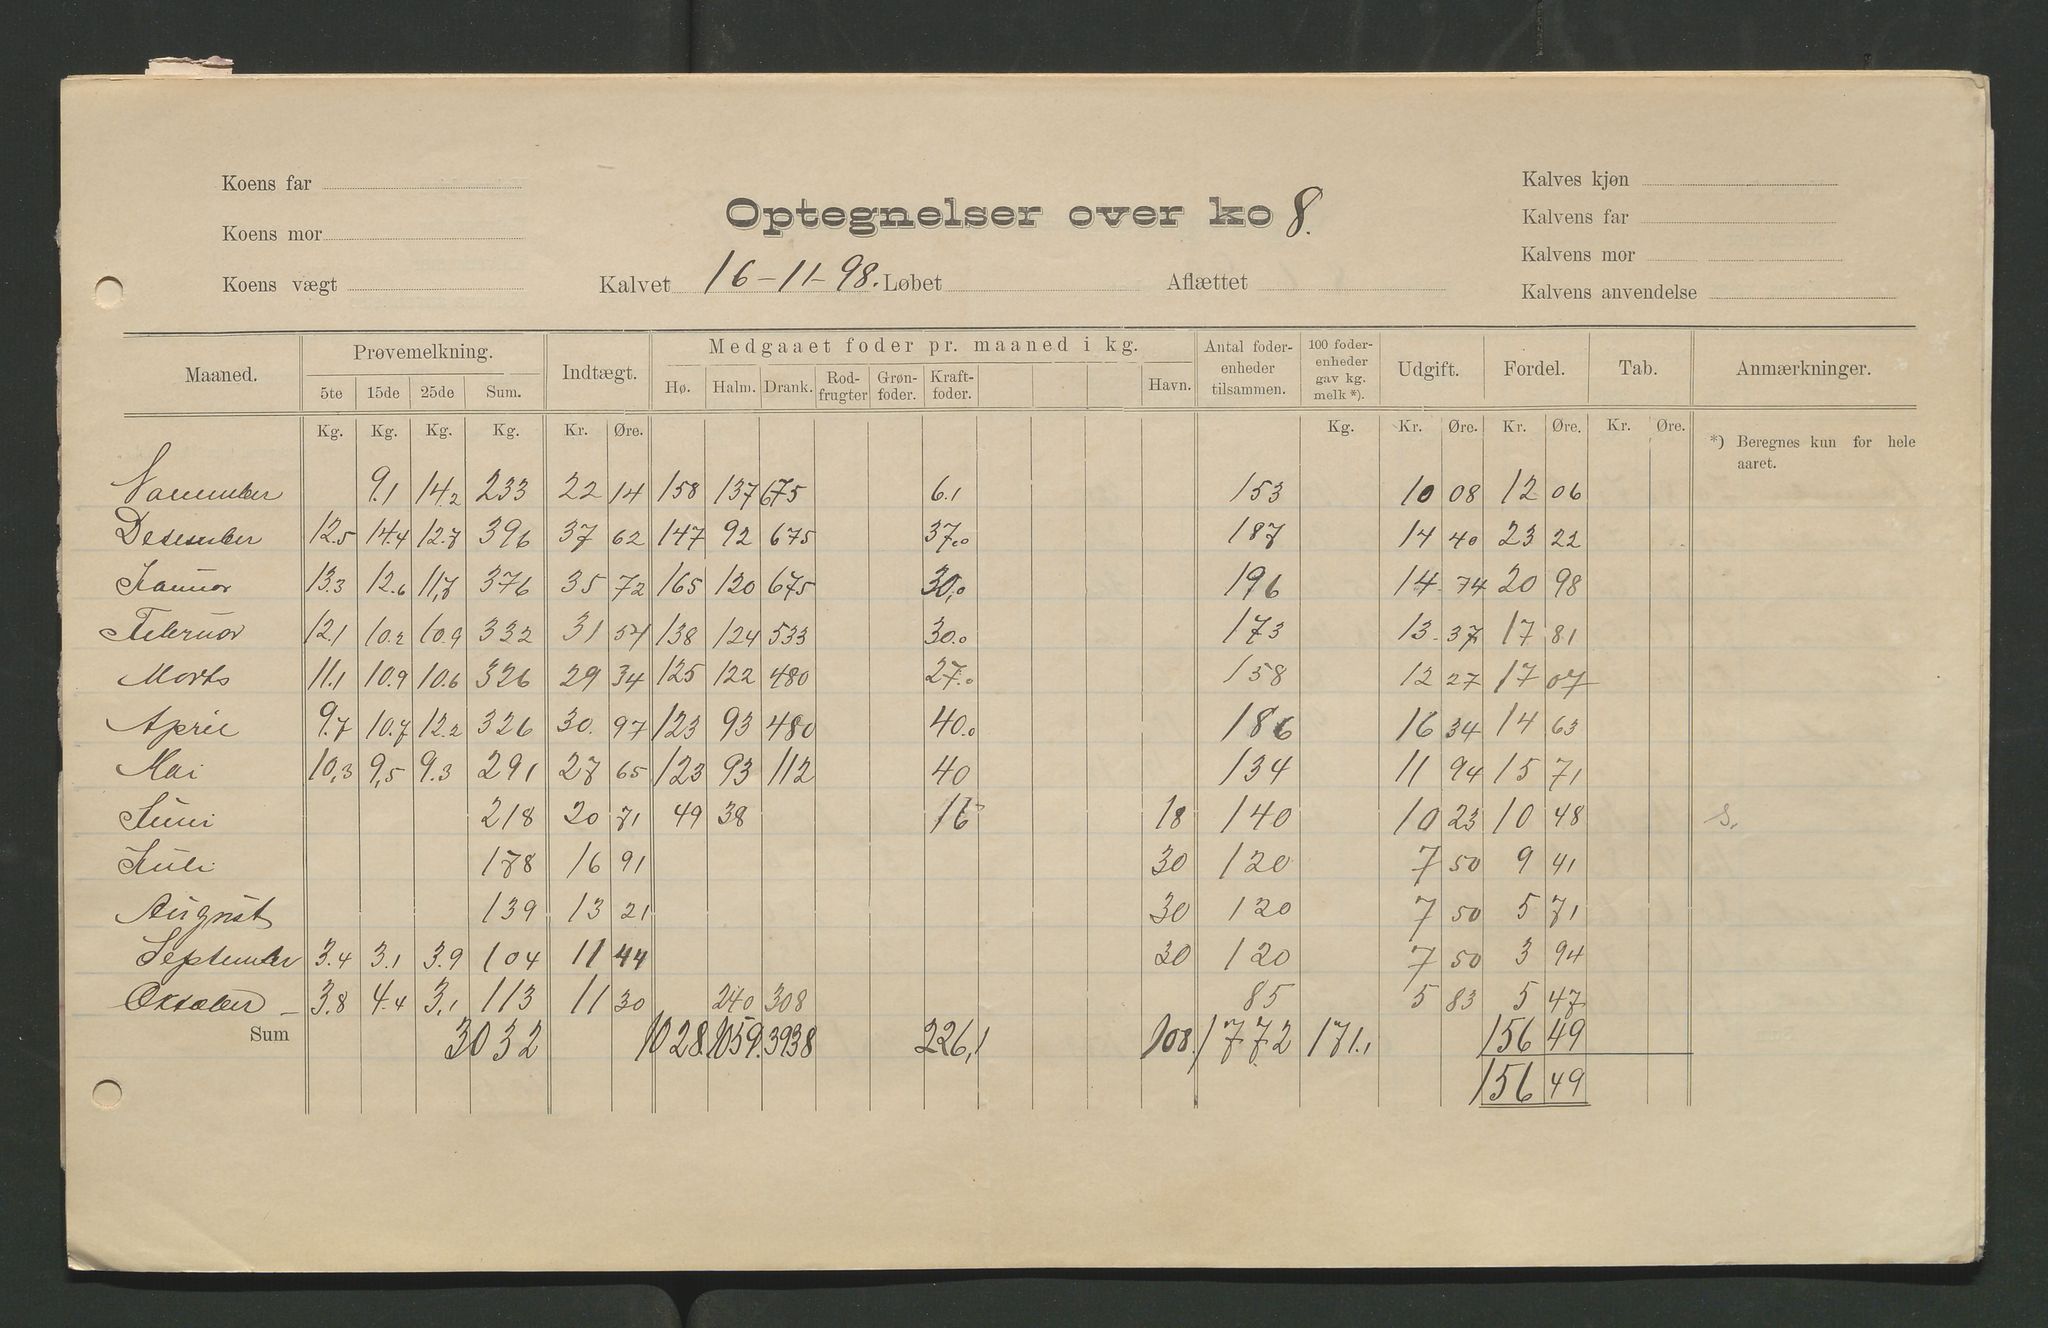 Koens far
Koens mor
Koens vægt
Optegnelser over ko 8.
Kalvet 16-11-98. Løbet Aflættet
Kalves kjøn
Kalvens far
Kalvens mor
Kalvens anvendelse
Maaned. Prøvemelkning. Indtægt. Medgaaet foder pr. maaned i kg. Antal foder-enheder tilsammen. 100 foder-enheder gav kg. melk *). Udgift. Fordel. Tab. Anmærkninger.
5te 15de 25de Sum. Hø. Halm. Drank. Rod-frugter Grøn-foder. Kraft-foder. Havn.
Kg. Kg. Kg. Kg. Kr. Øre. Kg. Kr. Øre. Kr. Øre. Kr. Øre.
*) Beregnes kun for hele
aaret.
November 9.1 14.2 233 22 14 158 137 675 6.1 153 10 08 12 06
Desember 12.5 14.4 12.7 396 37 62 147 92 675 37.0 187 14 40 23 22
Januar 13.3 12.6 11,7 376 35 72 165 120 675 30,0 196 14 74 20 98
Februar 12.1 10.2 10.9 332 31 54 138 124 533 30.0 173 13 37 17 81
Marts 11.1 10.9 10.6 326 29 34 125 122 480 27.0 158 12 27 17 07
April 9.7 10.7 12.2 326 30. 97 123 93 480 40.0 186 16 34 14 63
Mai 10,3 9,5 9.3 291 27 65 123 93 112 40 134 11 94 15 71
Juni 218 20 71 49 38 16 18 140 10 23 10 48 s.
Juli 178 16 91 30 120 7 50 9 41
August 139 13 21 30 120 7 50 5 71
September 3.4 3.1 3.9 104 11 44 30 120 7 50 3 94
Oktober 3.8 4.4 3,1 113 11 30 240 308 85 5 83 5 47
Sum 3032 1028. 1059. 3938 226,1 108. 1772 171.1 156 49
156 49